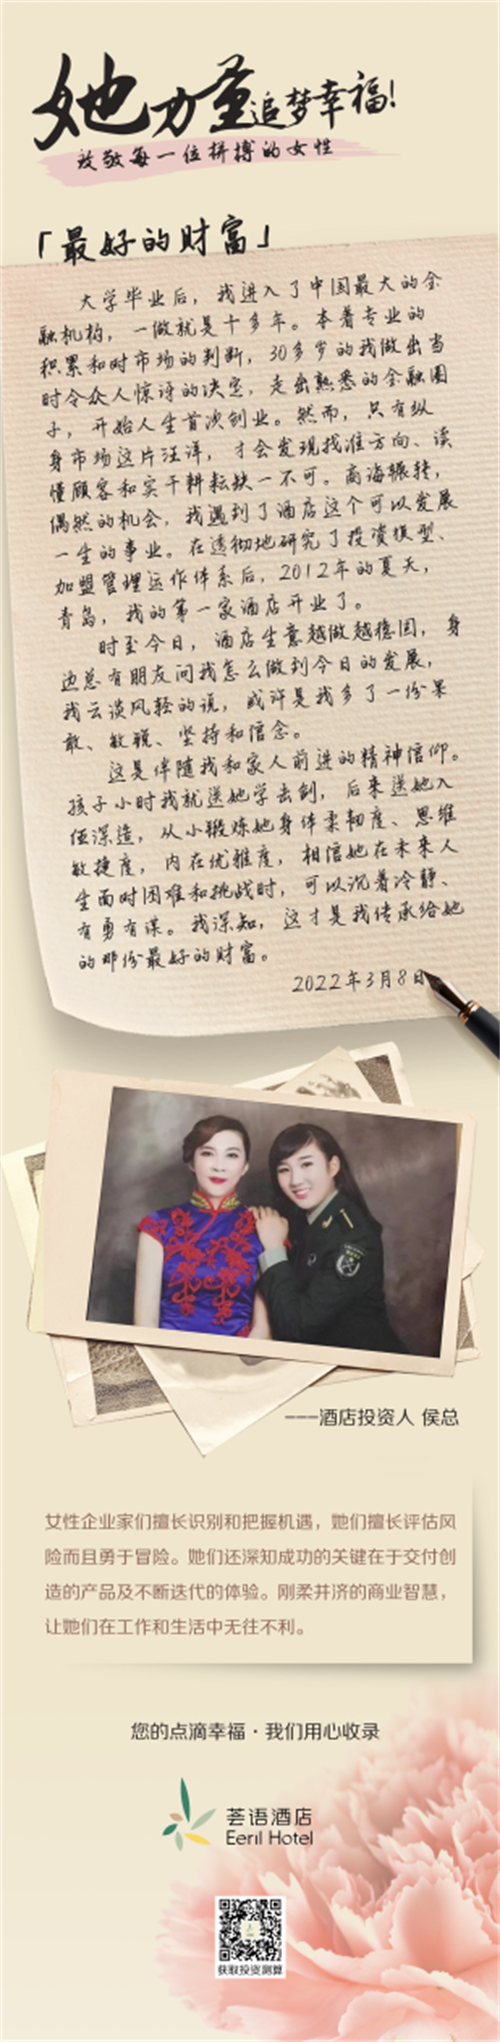 她力量追梦幸福!
致敬每一位拼搏的女性
「最好的财富」
大学毕业后，我进入了中国最大的金
融机构，一做就是十多年。本着专业的
积累和对市场的判断，30多岁的我做出当
时令众人惊讶的决定，走出熟悉的金融圈
子，开始人生首次创业。然而，只有纵
身市场这片汪洋，才会发现找准方向、读
懂顾客和实干耕耘缺一不可。商海辗转，
偶然的机会，我遇到了酒店这个可以发展
一生的事业。在透彻地研究了投资模型、
加盟管理运作体系后，2012年的夏天，
青岛，我的第一家酒店开业了。
时至今日，酒店生意越做越稳固，身
边总有朋友问我怎么做到今日的发展，
我云淡风轻的说，或许是我多了一份果
敢、敏锐、坚持和信念。
这是伴随我和家人前进的精神信仰。
孩子小时我就送她学击剑，后来送她入
伍深造，从小锻炼她身体柔韧度、思维
敏捷度，内在优雅度，相信她在未来人
生面对困难和挑战时，可以沉着冷静、
有勇有谋。我深知，这才是我传承给她
的那份最好的财富。
2022年3月8日
---酒店投资人 侯总
女性企业家们擅长识别和把握机遇，她们擅长评估风
险而且勇于冒险。她们还深知成功的关键在于交付创
造的产品及不断迭代的体验。刚柔并济的商业智慧，
让她们在工作和生活中无往不利。
您的点滴幸福·我们用心收录
荟语酒店
Eeril Hotel
获取投资测算